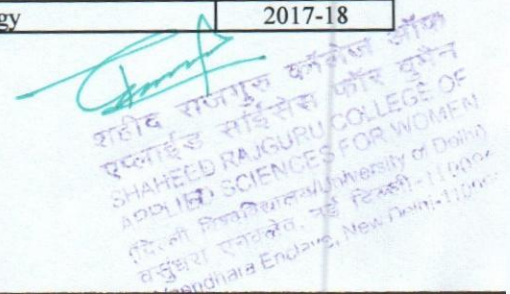 gy 2017-18
शहीद राजगुरु कॉलेज ऑफ
एप्लाईड साईंसेस फॉर वुमेन
SHAHEED RAJGURU COLLEGE OF
APPLIED SCIENCES FOR WOMEN
(दिल्ली विश्वविद्यालय/University of Delhi)
वसुंधरा एनक्लेव, नई दिल्ली-110096
Vasundhara Enclave, New Delhi-110096